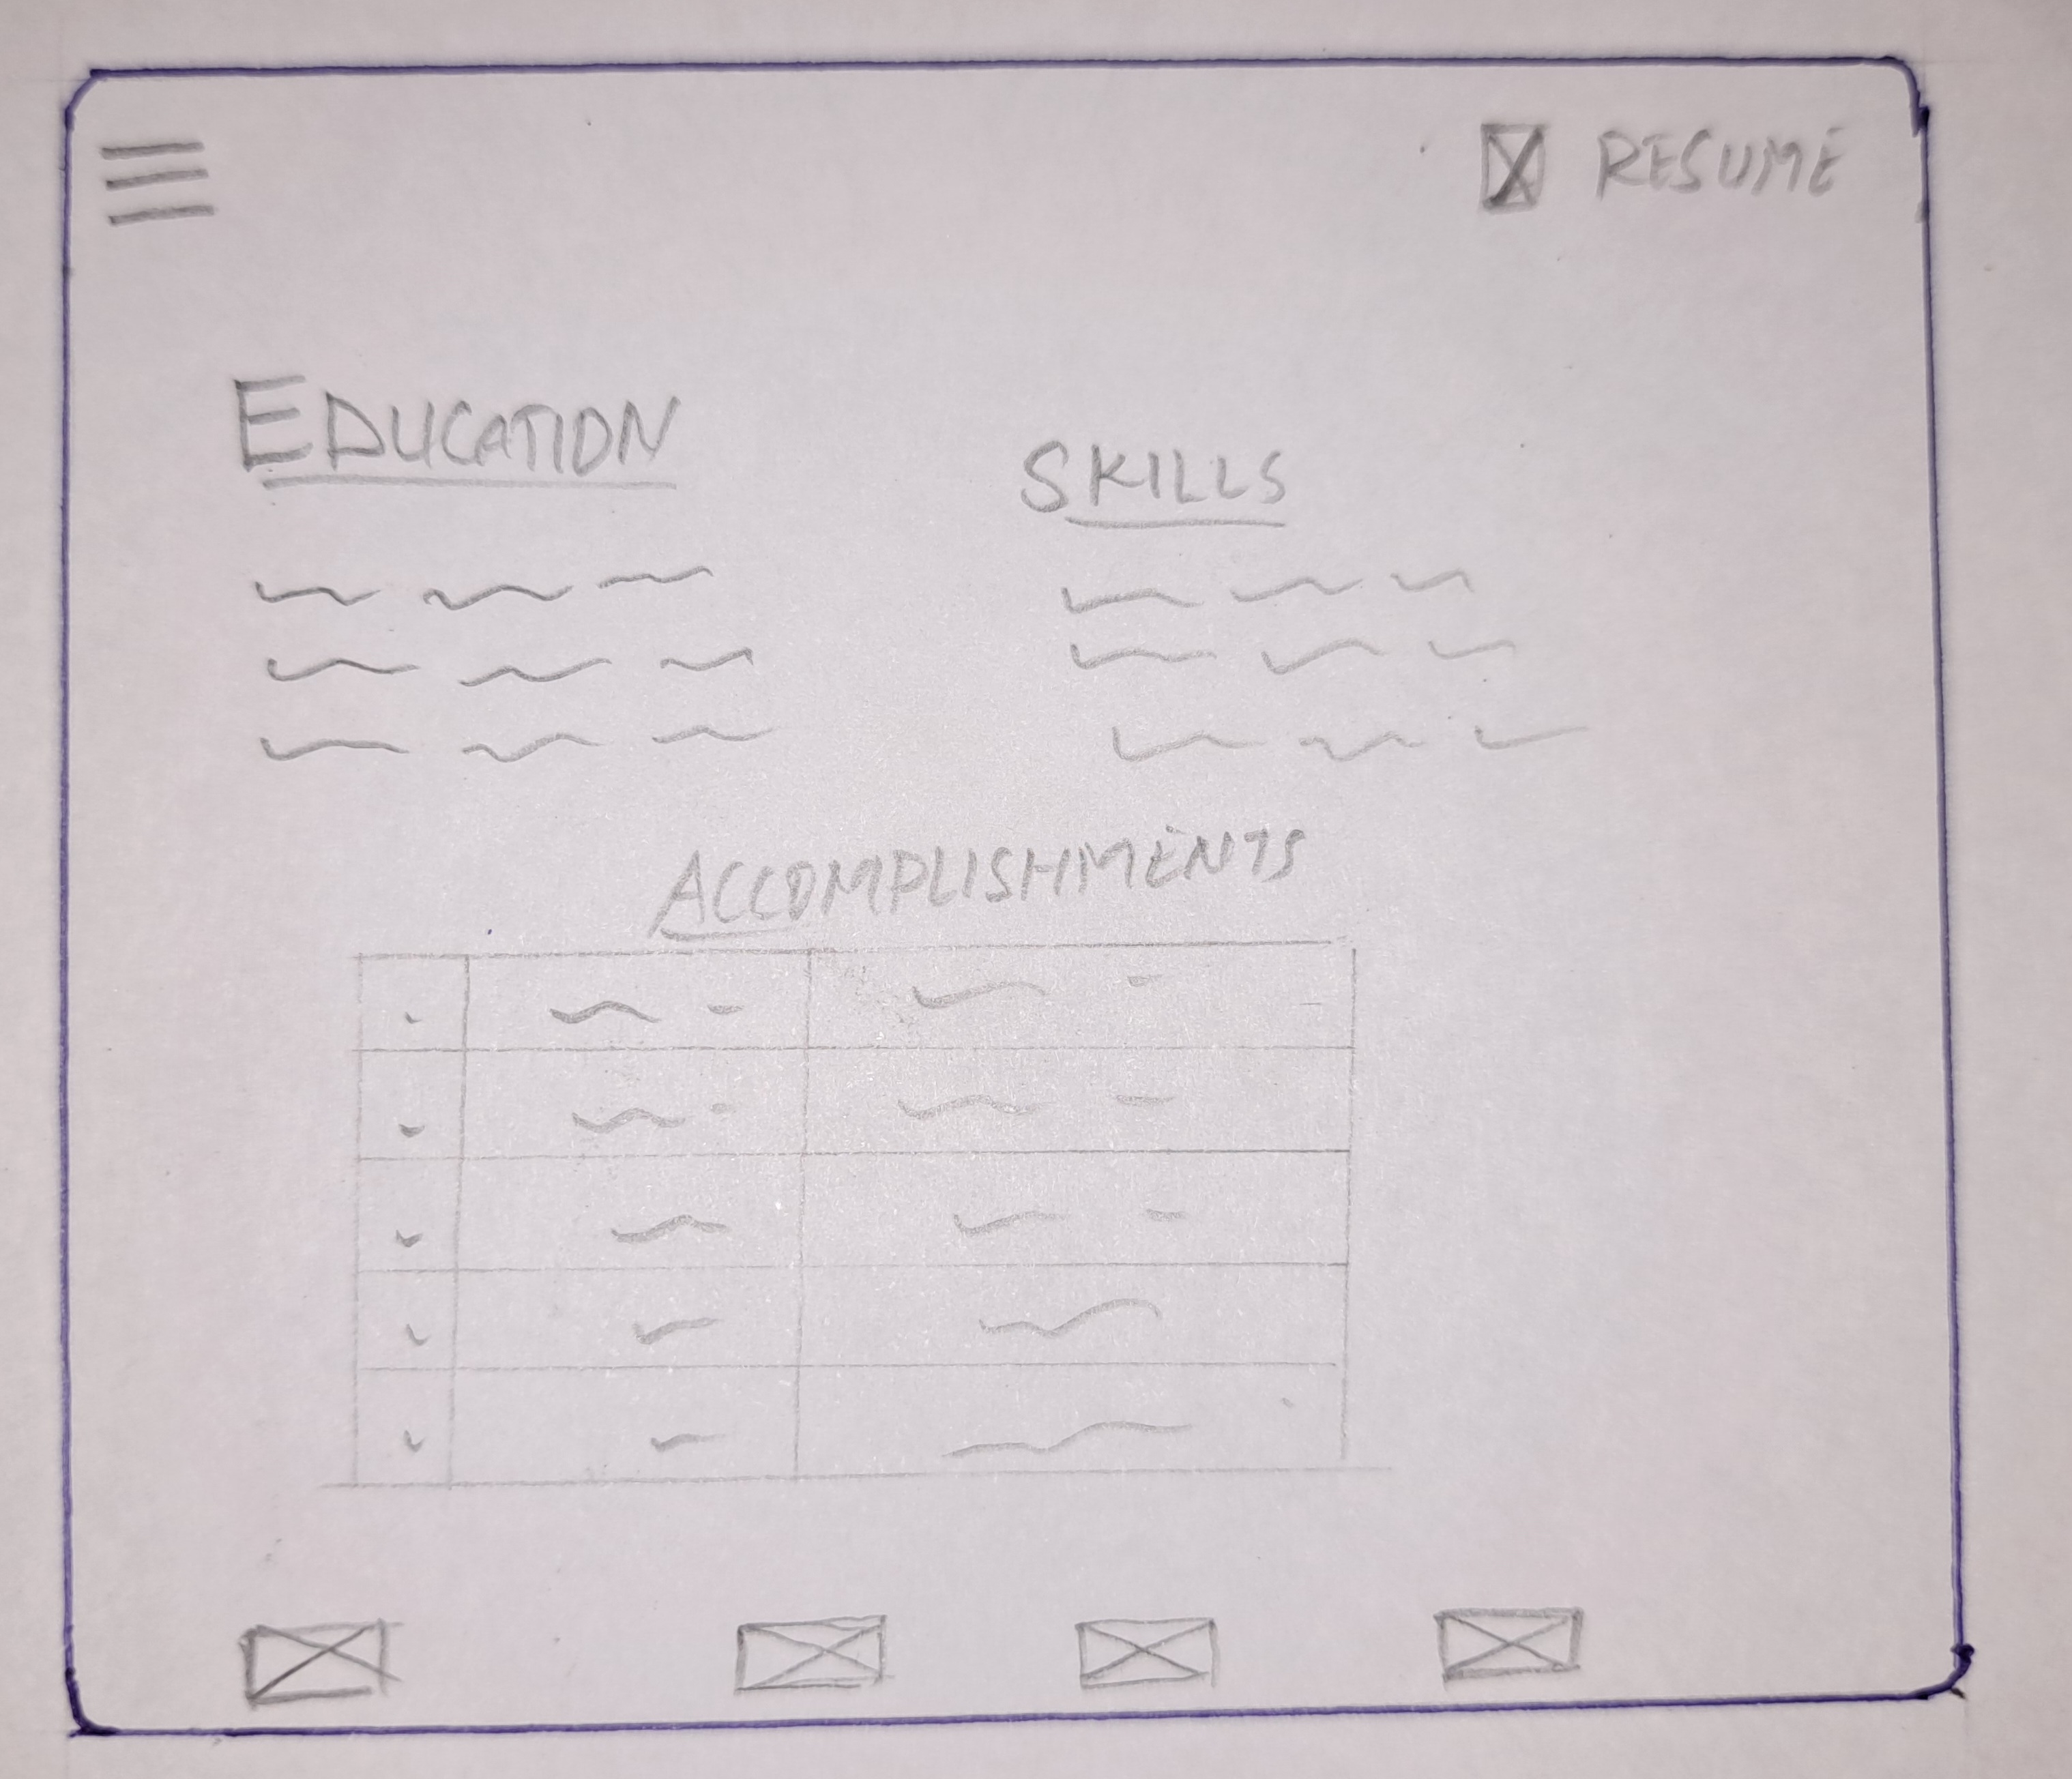 RESUME
EDUCATION
SKILLS
ACCOMPLISHMENTS